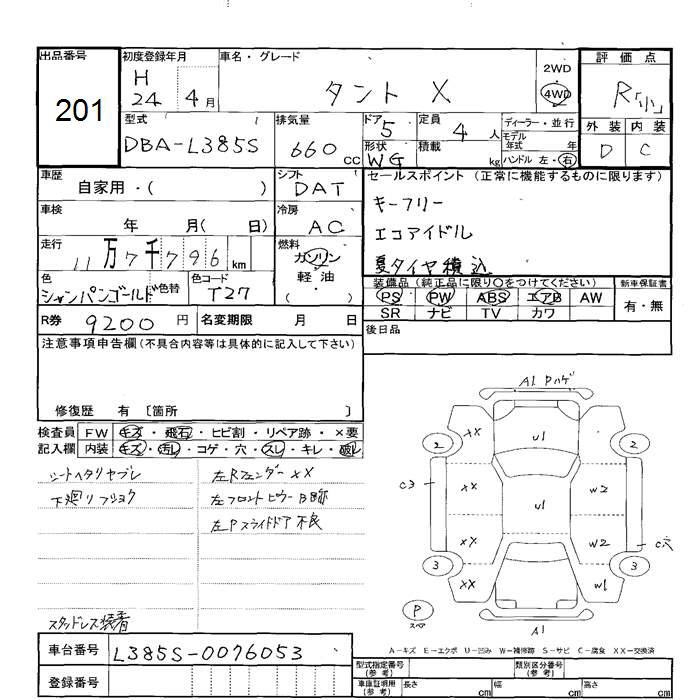 出品番号
201
初度登録年月
H
24 4月
車名・グレード
タント X
2WD
4WD
評価点
R「小」
外装 内装
D C
型式
DBA-L385S
排気量
660cc
ドア
5
定員
4人
形状
WG
積載
kg
ディーラー・並行
モデル年式 年
ハンドル 左・右
車歴
自家用・( )
シフト
DAT
セールスポイント (正常に機能するものに限ります)
キーフリー
エコアイドル
夏タイヤ積込
車検
年 月( 日)
冷房
AC
走行
11万7千796km
燃料
ガソリン
軽油
( )
色
シャンパンゴールド
色替
色コード
T27
装備品 (純正品に限り○をつけてください)
PS PW ABS エアB AW
SR ナビ TV カワ
新車保証書
有・無
R券 9200円
名変期限 月 日
後日品
注意事項申告欄(不具合内容等は具体的に記入して下さい)
修復歴 有 [箇所 ]
検査員記入欄
FW キズ・飛石・ヒビ割・リペア跡・×要
内装 キズ・汚レ・コゲ・穴・スレ・キレ・破レ
シートヘタリヤブレ
下廻リフショク
スタッドレス装着
左Rフェンダー XX
左フロントピラー
左Pスライドドア不良
A1 Pハゲ
XX U1
2 2
C3 XX U1 W2
XX W2 C穴
3 3
XX W1
P
スペア
A1
A-キズ E-エクボ U-凹み W-補修跡 S-サビ C-腐食 XX-交換済
車台番号
L385S-0076053
登録番号
型式指定番号
(参考)
類別区分番号
(参考)
車庫証明用
(参考)
長さ cm 幅 cm 高さ cm